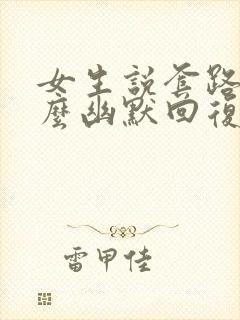 女生説套路怎
麼幽默回復
雷甲佳